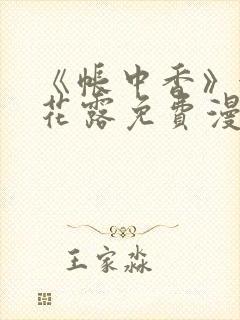 《帐中香》
花露免费漫
王家淼